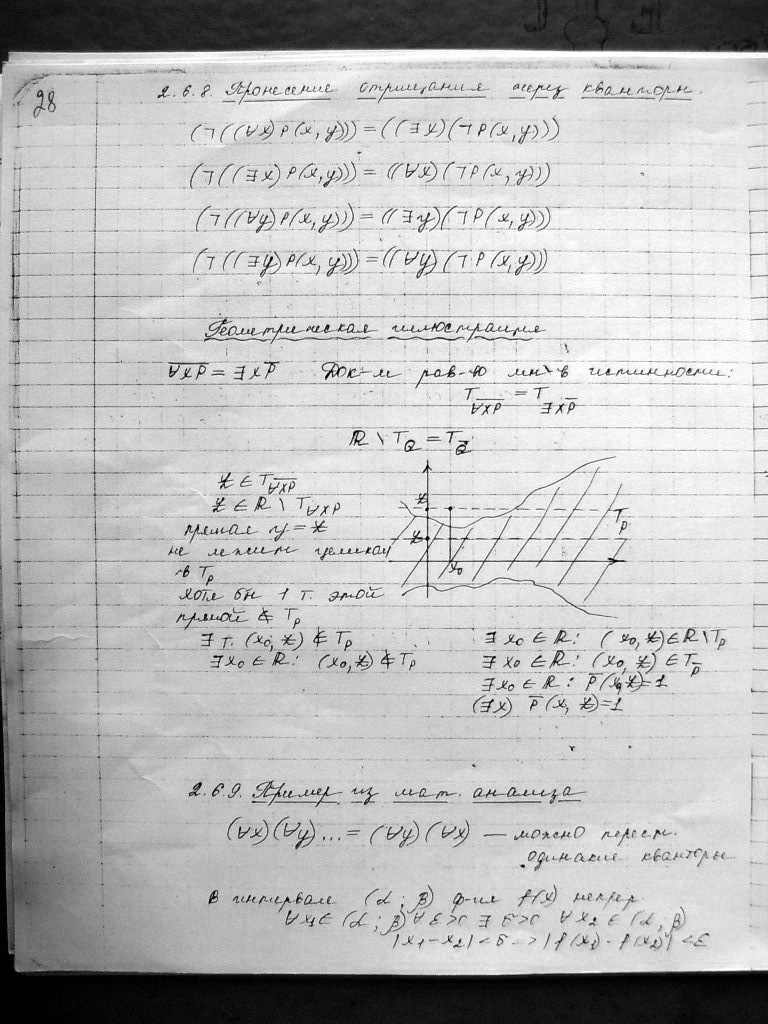 28
2.6.8. Пронесение отрицания через кванторы.
(ך((∀x)P(x,y))) = ((∃x)(ךP(x,y)))
(ך((∃x)P(x,y))) = ((∀x)(ךP(x,y)))
(ך((∀y)P(x,y))) = ((∃y)(ךP(x,y)))
(ך((∃y)P(x,y))) = ((∀y)(ךP(x,y)))
Геометрическая иллюстрация
\overline{∀xP} = ∃x\overline{P} Док-м рав-во мн-в истинности:
T_{\overline{∀xP}} = T_{∃x\overline{P}}
ℝ \ T_Q = T_{\overline{Q}}
z ∈ T_{\overline{∀xP}}
z ∈ ℝ \ T_{∀xP}
прямая y = z
не лежит целиком
в T_P
хотя бы 1 т. этой
прямой ∉ T_P
∃ т. (x₀, z) ∉ T_P
∃ x₀ ∈ ℝ: (x₀, z) ∉ T_P
z
z
x₀
T_P
∃ x₀ ∈ ℝ: (x₀, z) ∈ ℝ \ T_P
∃ x₀ ∈ ℝ: (x₀, z) ∈ T_{\overline{P}}
∃ x₀ ∈ ℝ: \overline{P}(x₀, z) = 1
(∃x) \overline{P}(x, z) = 1
2.6.9. Пример из мат. анализа
(∀x)(∀y)... = (∀y)(∀x) — можно перест.
одинакие кванторы
В интервале (α; β) ф-ия f(x) непрер
∀x₁ ∈ (α; β) ∀ε>0 ∃δ>0 ∀x₂ ∈ (α; β)
|x₁ - x₂| < δ => |f(x₁) - f(x₂)| < ε